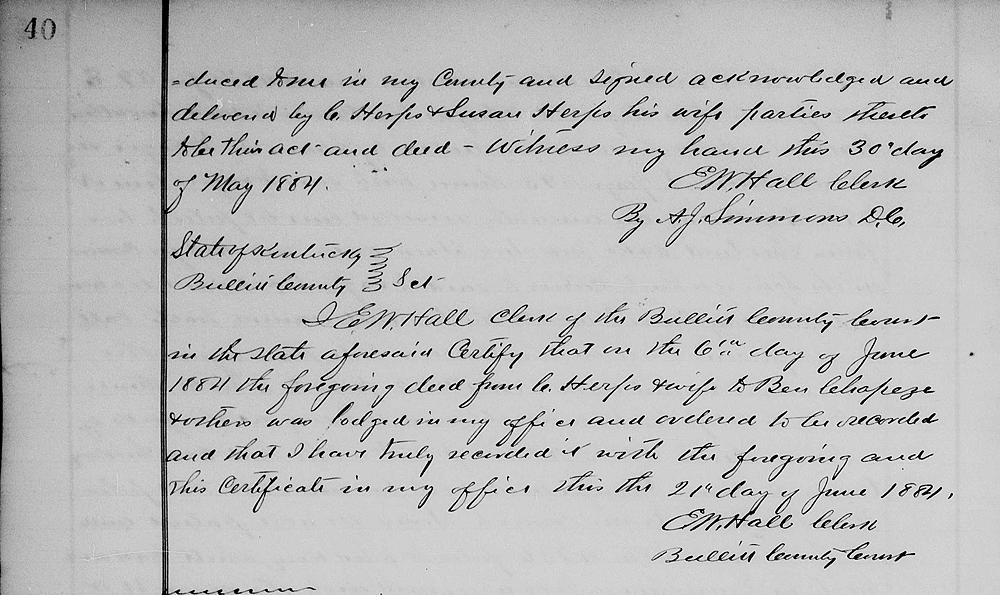 40
-duced to me in my County and signed acknowledged and
delivered by C. Herps & Susan Herps his wife parties thereto
to be their act and deed - Witness my hand this 30" day
of May 1884.
E.W. Hall Clerk
By A.J. Simmons D.C.
State of Kentucky
Bullitt County } Sct
I E.W. Hall Clerk of the Bullitt County Court
in the state aforesaid Certify that on the 6th day of June
1884 the foregoing deed from C. Herps & wife to Ben Chapeze
& others was lodged in my office and ordered to be recorded
and that I have truly recorded it with the foregoing and
this Certificate in my office this the 21" day of June 1884.
E.W. Hall Clerk
Bullitt County Court